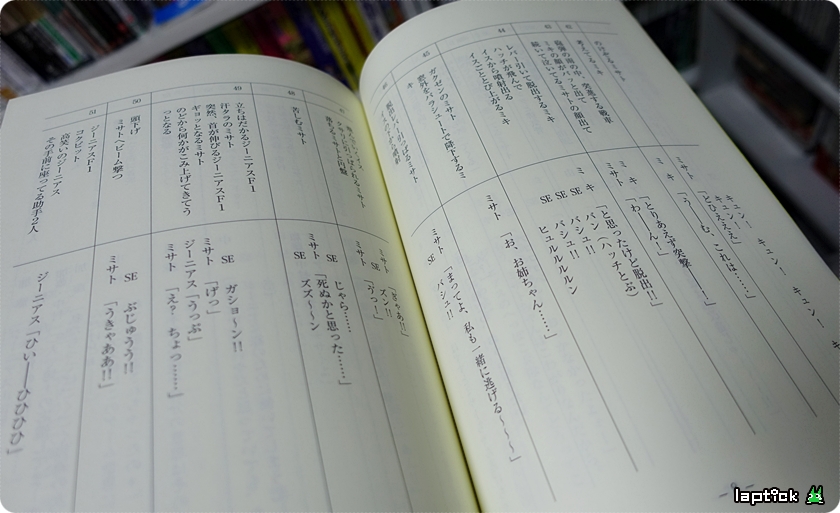 キュン！　キュン！　キュン！　キュン！
「とひええええ」
ミサト「うーむ、これは……」
44
レバー引いて脱出するミキ
ハッチが飛んで
イスから噴射出る
イスごととび上がるミキ
ミキ「とりあえず突撃
ミサト「わーーん！」
ミキ「と思ったけど脱出!!」
SE　バン!!（ハッチとぶ）
SE　バシュ!!
SE　バシュ!!
SE　ヒュルルルルン
45
ガクゼンのミサト
意外をパラシュートで降下するミキ
ミサト「お、お姉ちゃん……」
46
ミサト「まってよ、私も一緒に逃げる〜〜〜」
SE　バシュ!!
ミサト「ぎゃあ!!」
SE　ズン!!
48
苦しむミサト
SE　じゃら……
ミサト「死ぬかと思った……」
SE　ズズ〜〜ン
49
立ちはだかるジーニアスF1
汗タラのミサト
突然、首が伸びるジーニアスF1
ギョッとなるミサト
のどから何かがこみ上げてきてうっとなる
SE　ガショ〜ン!!
ミサト「げっ」
ジーニアス「うっぷ」
ミサト「え？　ちょっ……」
50
頭下げ
ミサトへビーム撃つ
SE　ぶじゅうう!!
ミサト「うきゃああ!!」
51
ジーニアスF1
コクピット
高笑いのジーニアス
その手前に座ってる助手2人
ジーニアス「ひぃ――ひひひひ」
laptick